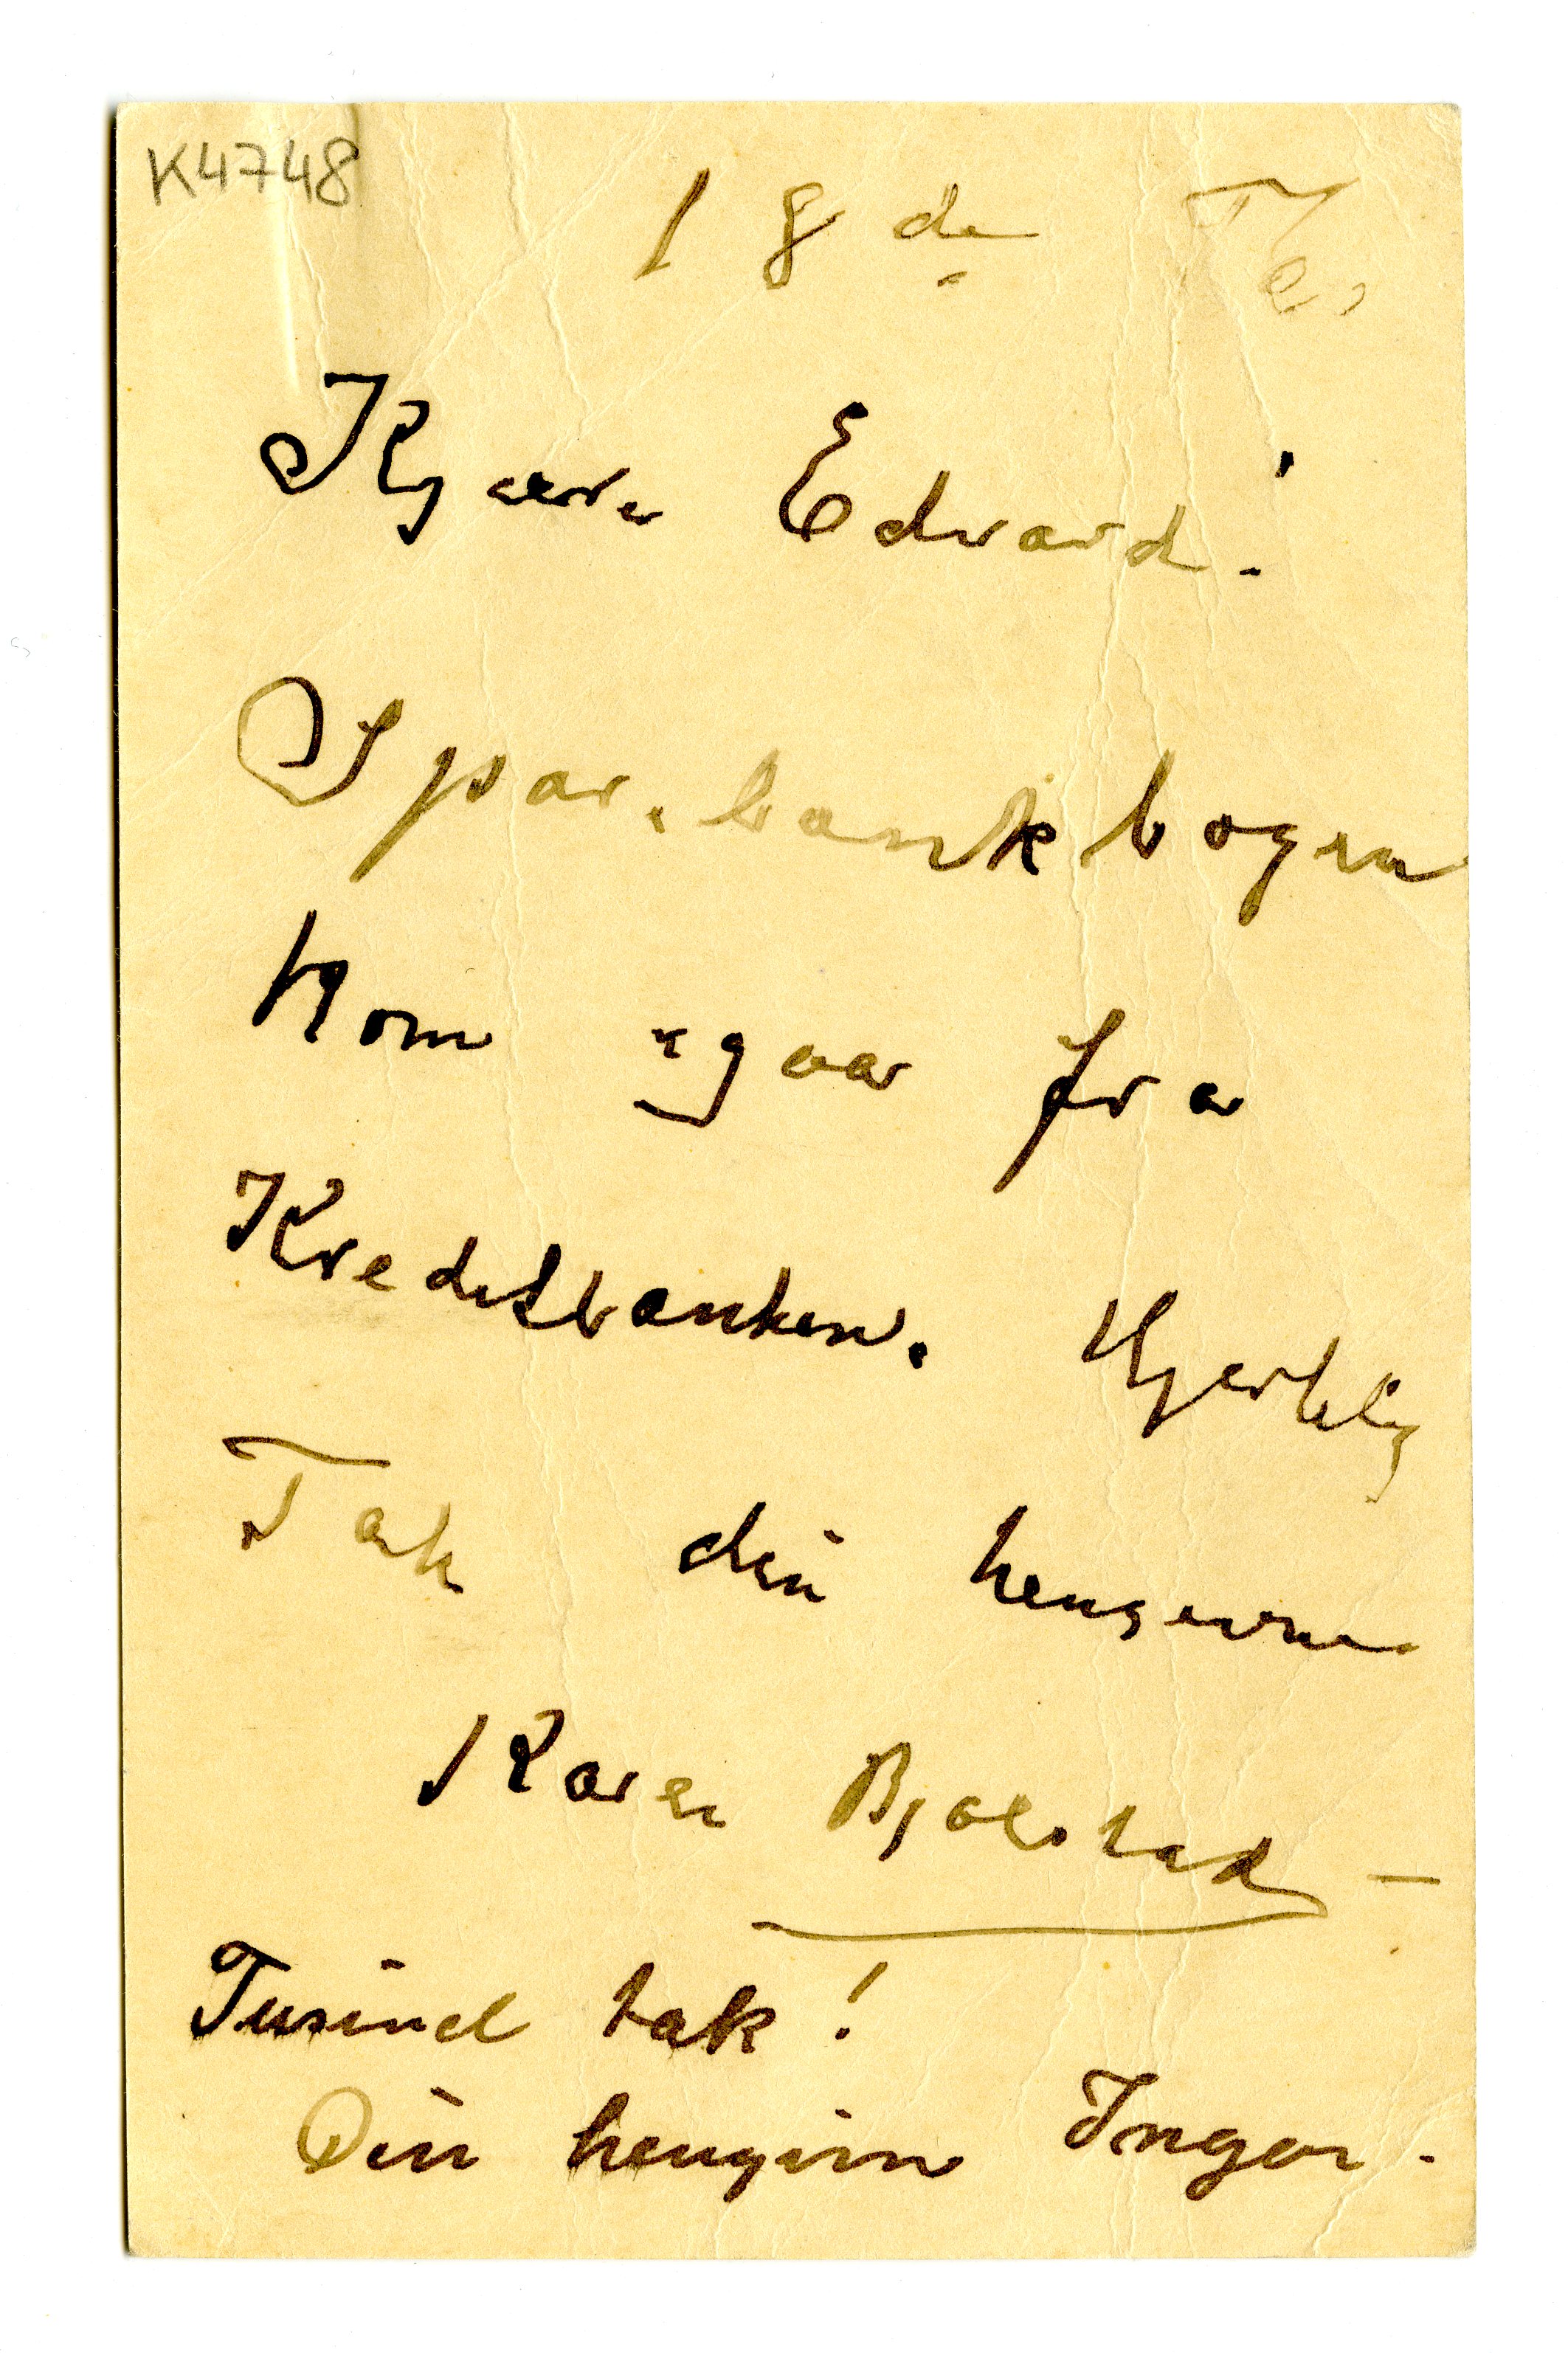 K4748
18de
Kjære Edvard!
Sparebankbogen
kom igaar fra
Kreditbanken. Hjertelig
Tak din hengivne
Karen Bjølstad –
Tusind tak!
Din hengivne Inger.